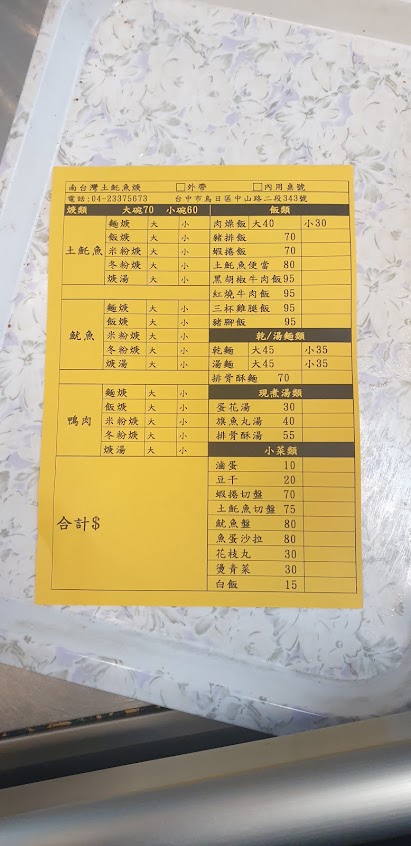 南台灣土魠魚焿 □外帶 □內用桌號
電話:04-23375673 台中市烏日區中山路二段343號
焿類 大碗70 小碗60
土魠魚
麵焿 大 小
飯焿 大 小
米粉焿 大 小
冬粉焿 大 小
焿湯 大 小
魷魚
麵焿 大 小
飯焿 大 小
米粉焿 大 小
冬粉焿 大 小
焿湯 大 小
鴨肉
麵焿 大 小
飯焿 大 小
米粉焿 大 小
冬粉焿 大 小
焿湯 大 小
合計$
飯類
肉燥飯 大40 小30
豬排飯 70
蝦捲飯 70
土魠魚便當 80
黑胡椒牛肉飯95
紅燒牛肉飯 95
三杯雞腿飯 95
豬腳飯 95
乾/湯麵類
乾麵 大45 小35
湯麵 大45 小35
排骨酥麵 70
現煮湯類
蛋花湯 30
旗魚丸湯 40
排骨酥湯 55
小菜類
滷蛋 10
豆干 20
蝦捲切盤 70
土魠魚切盤 75
魷魚盤 80
魚蛋沙拉 80
花枝丸 30
燙青菜 30
白飯 15